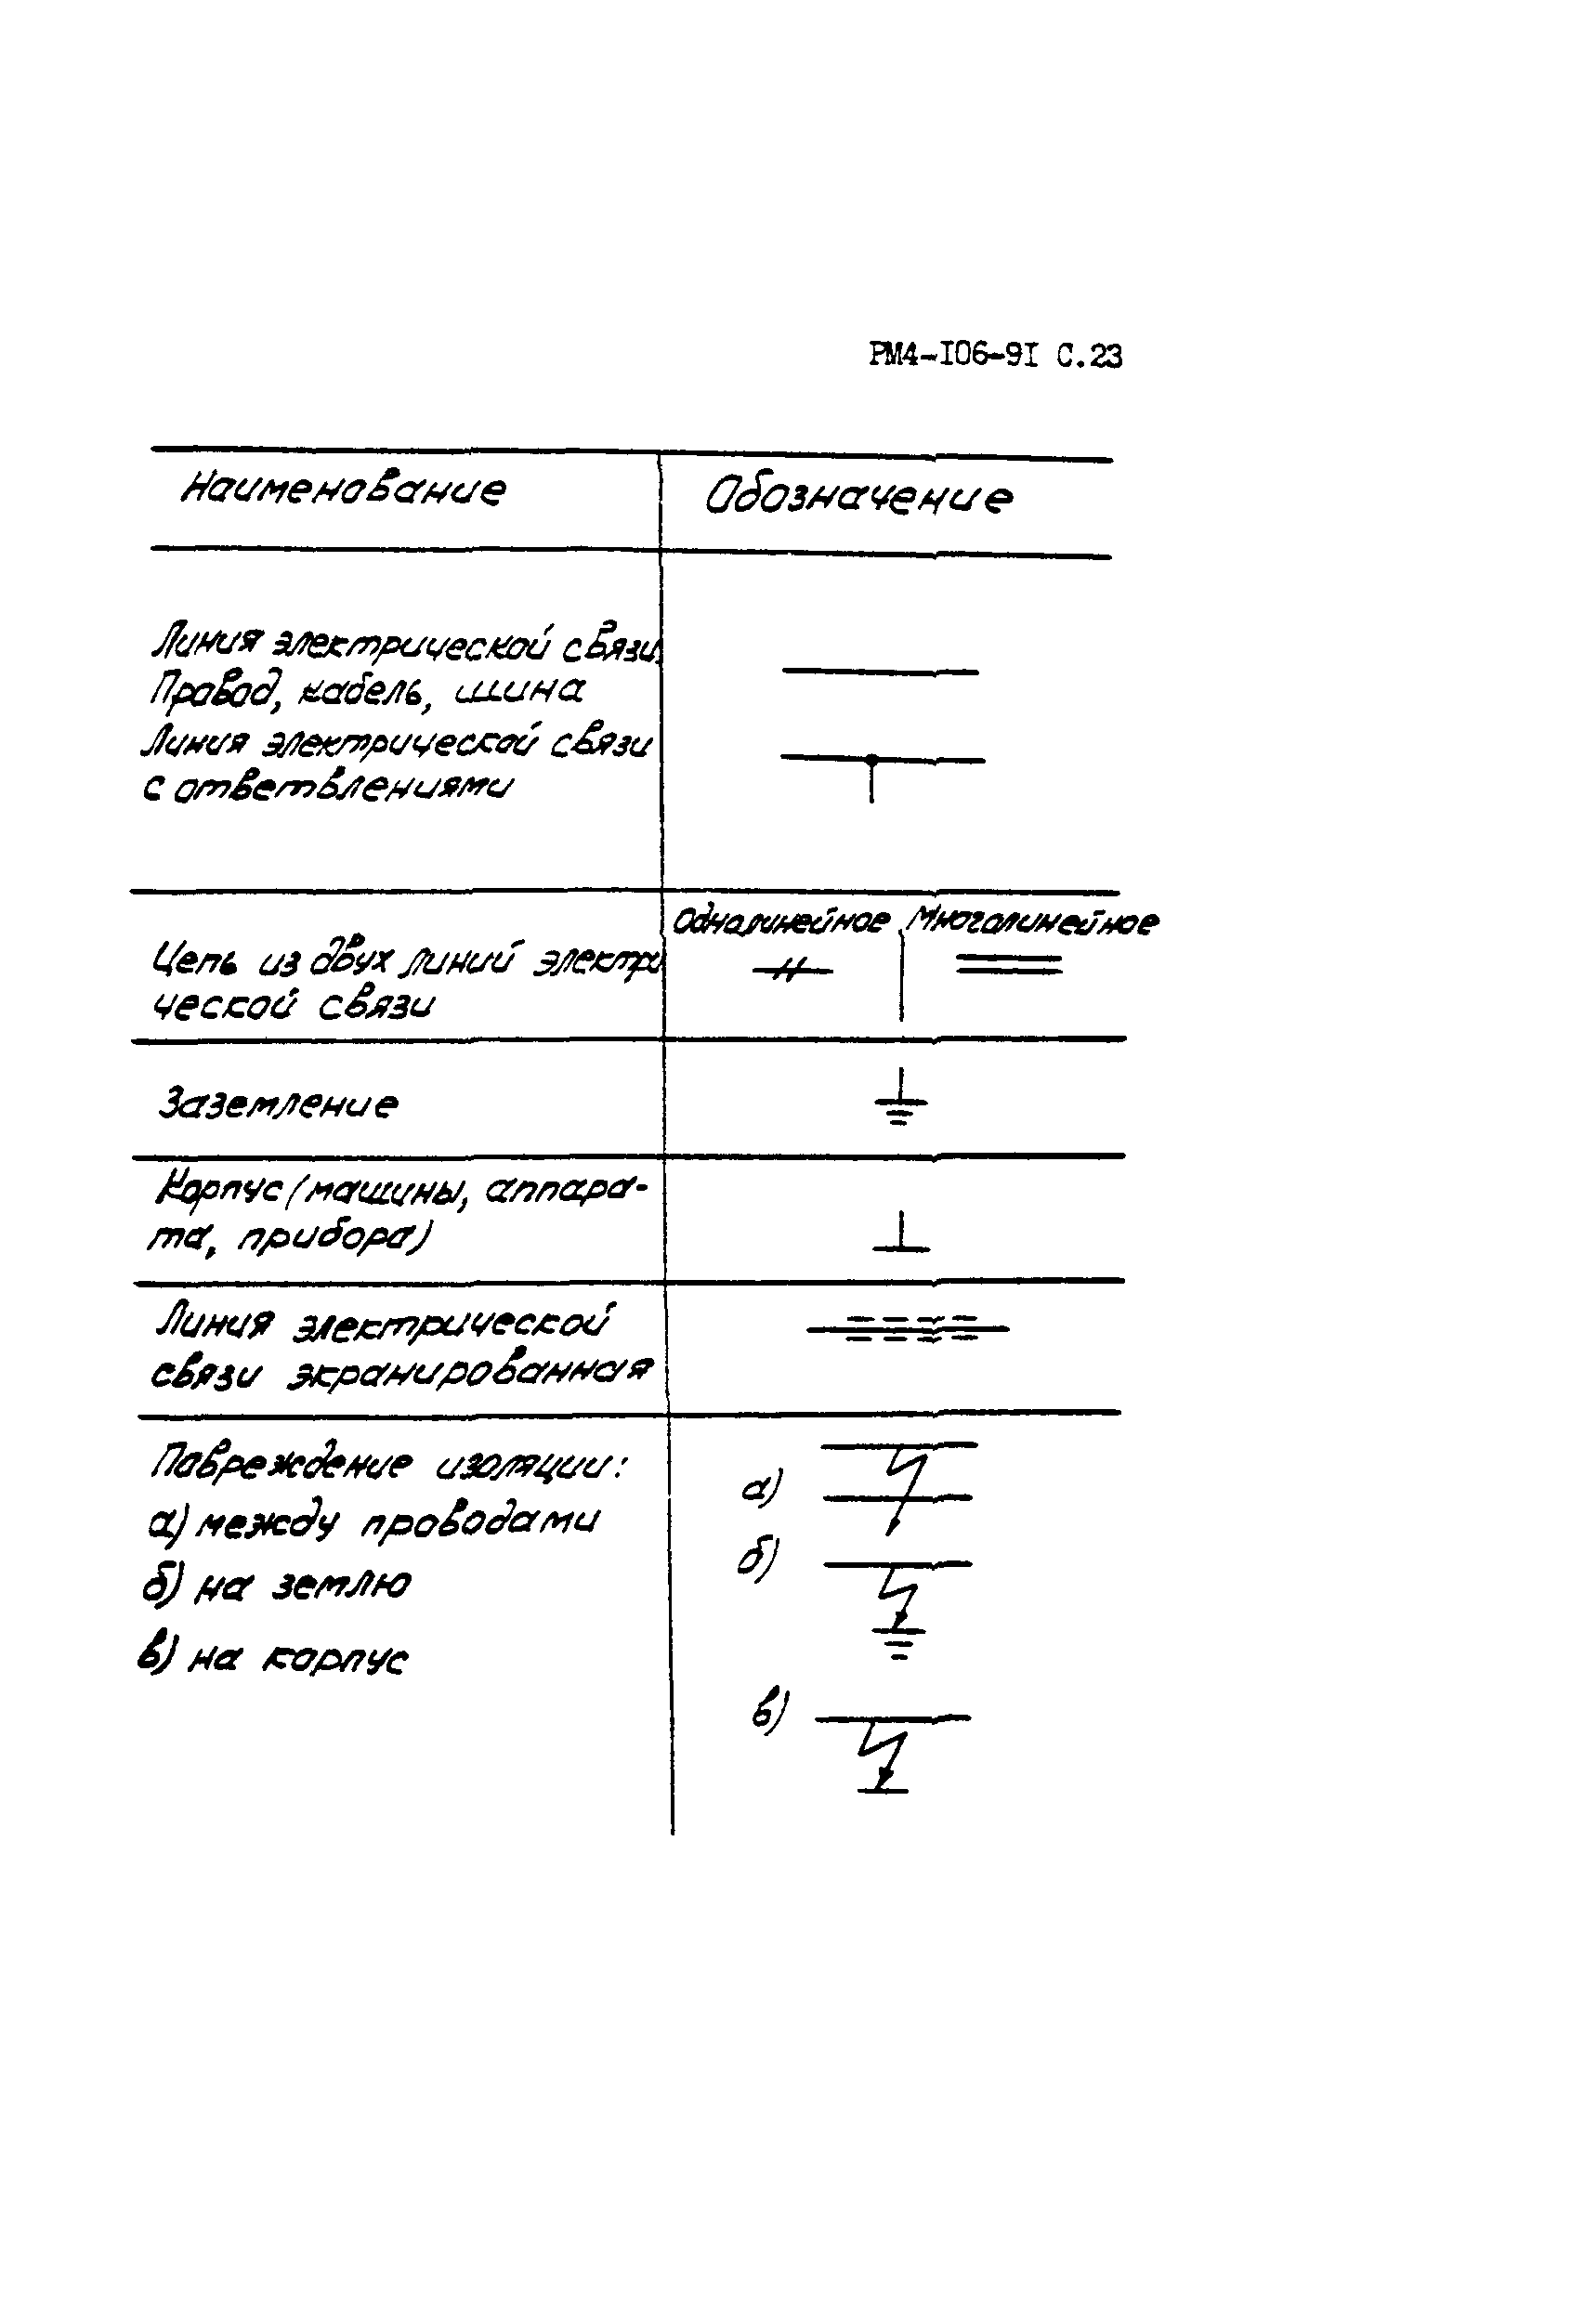 РМ4-I06-9I С.23
Наименование
Обозначение
Линия электрической связи.
Провод, кабель, шина
Линия электрической связи
с ответвлениями
Однолинейное
Многолинейное
Цепь из двух линий электри
ческой связи
Заземление
Корпус (машины, аппара-
та, прибора)
Линия электрической
связи экранированная
Повреждение изоляции:
а) между проводами
б) на землю
в) на корпус
а)
б)
в)